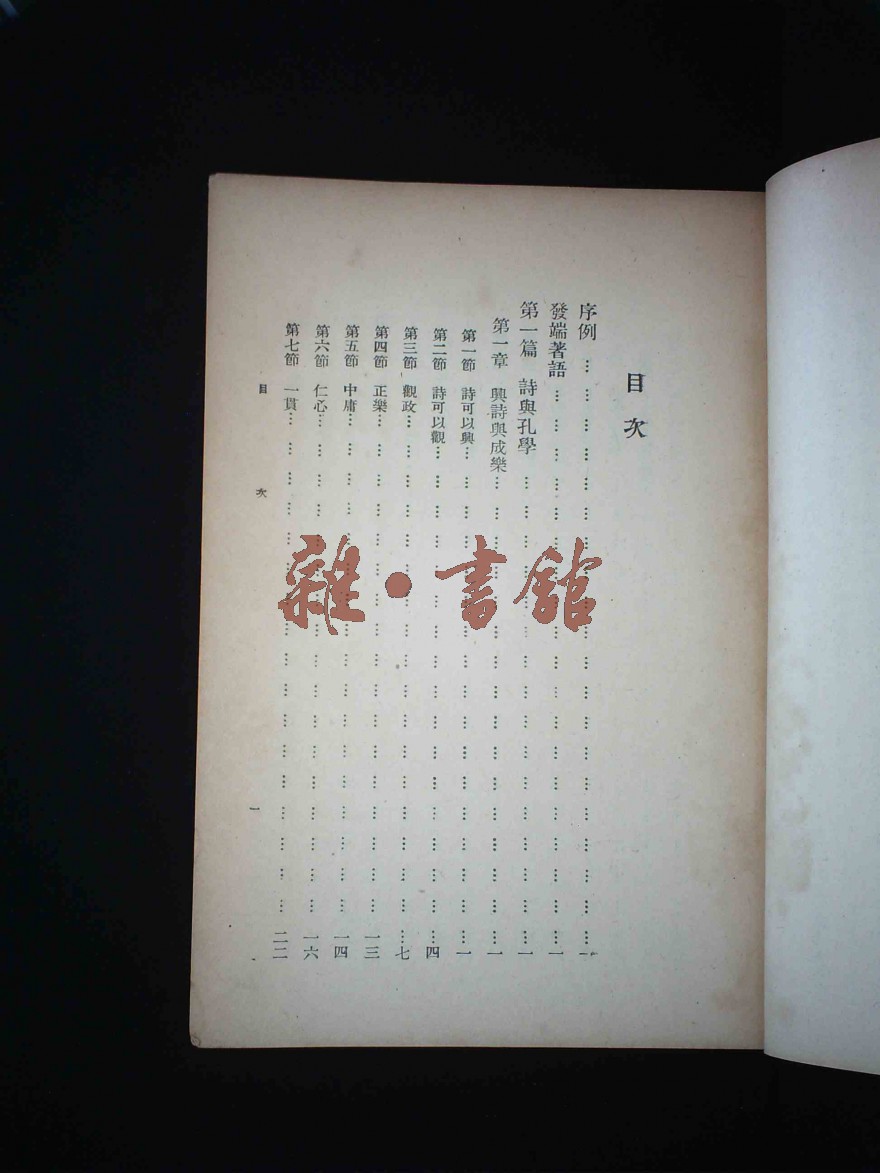 目次
序例……一
發端著語……一
第一篇 詩與孔學……一
第一章 興詩與成樂……一
第一節 詩可以興……一
第二節 詩可以觀……四
第三節 觀政……七
第四節 正樂……一三
第五節 中庸……一四
第六節 仁心……一六
第七節 一貫……二二
目次 一
雜·書館